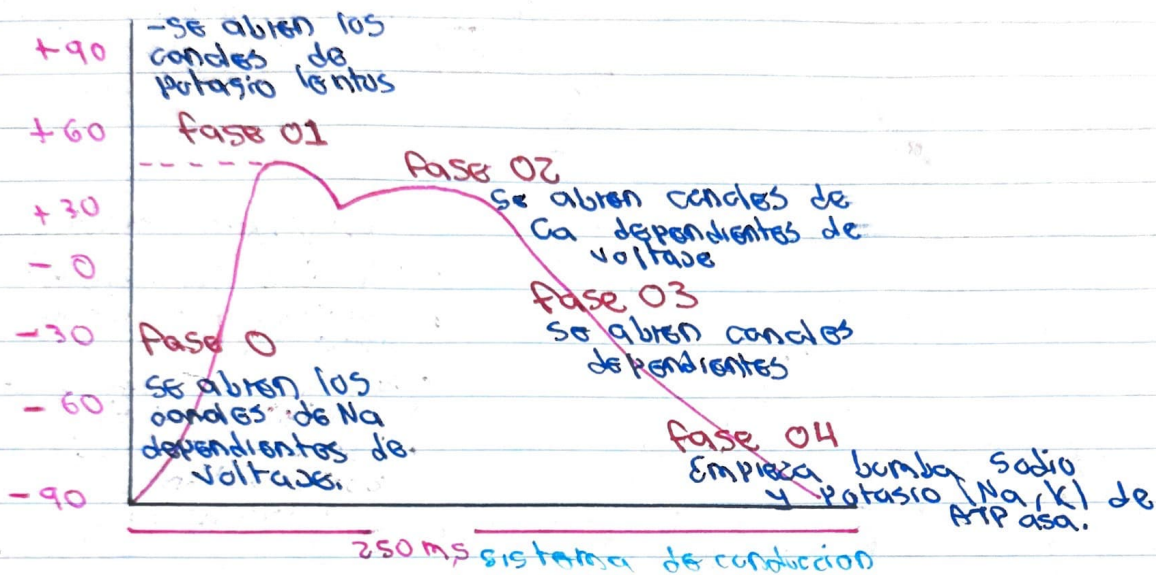 +90
-se abren los
canales de
potasio lentos
+60
fase 01
fase 02
+30
se abren canales de
Ca dependientes de
voltaje
- 0
fase 03
-30
fase 0
se abren canales
dependientes
se abren los
- 60
canales de Na
dependientes de
voltaje.
fase 04
-90
Empieza bomba sodio
y potasio (Na, K) de
ATP asa.
250 ms
sistema de conduccion